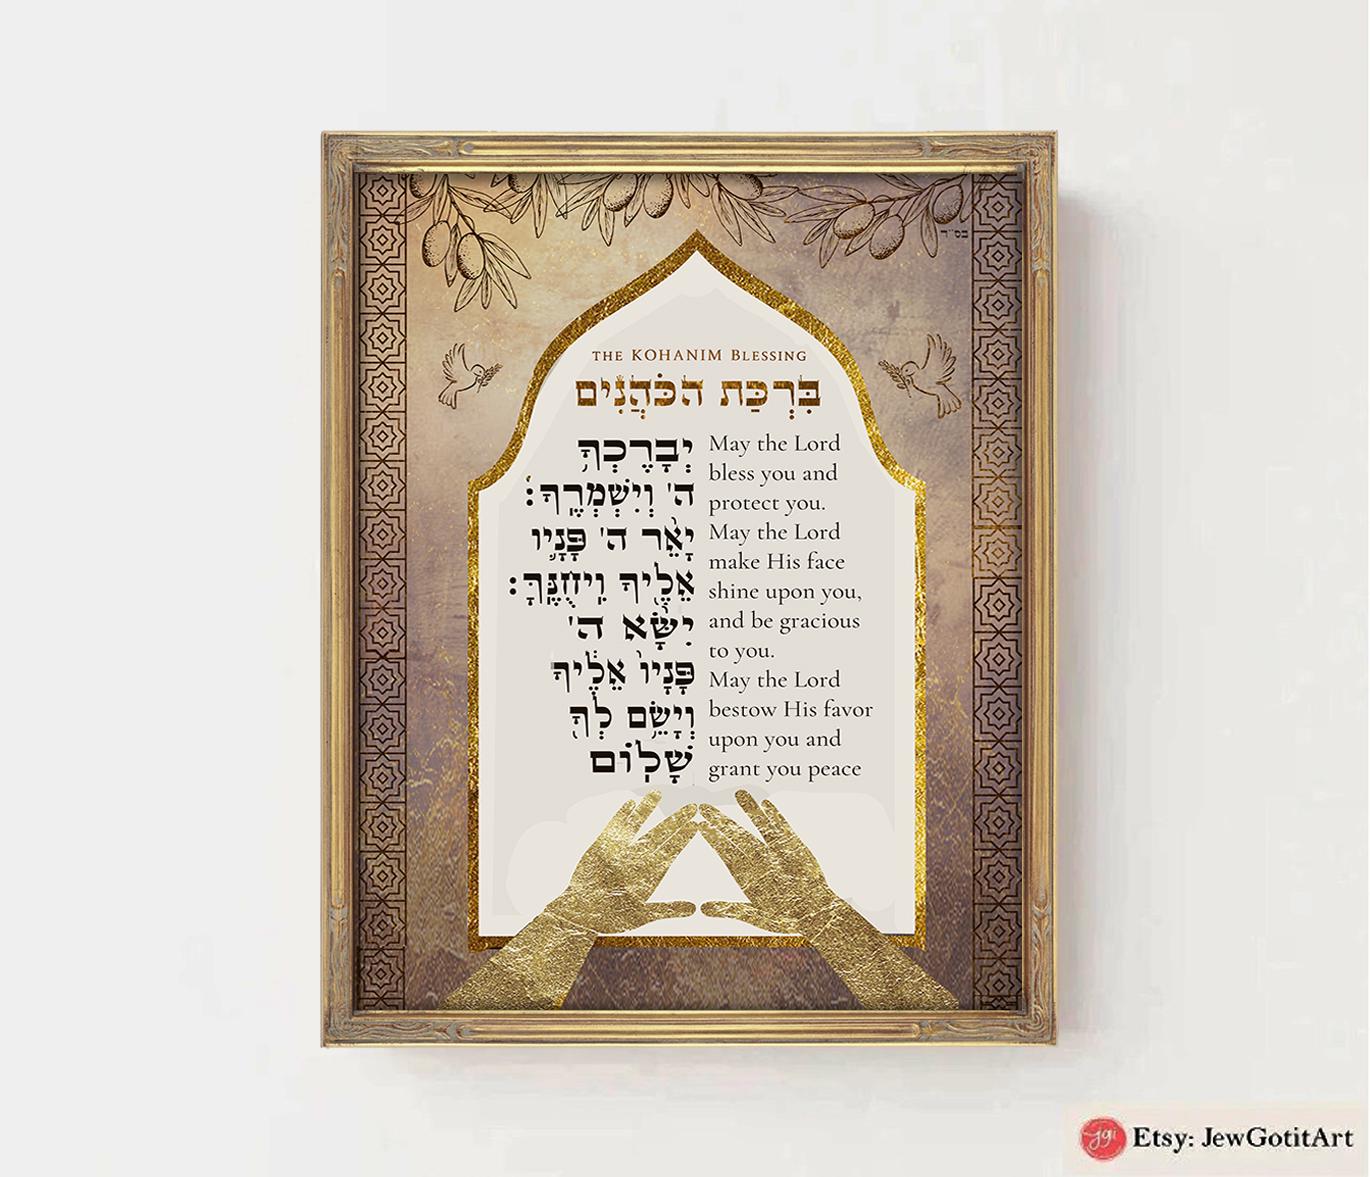 בס"ד
THE KOHANIM BLESSING
בִּרְכַּת הַכֹּהֲנִים
יְבָרֶכְךָ֥
ה' וְיִשְׁמְרֶֽךָ׃
יָאֵ֨ר ה' פָּנָ֛יו
אֵלֶ֖יךָ וִֽיחֻנֶּֽךָּ׃
יִשָּׂ֨א ה'
פָּנָיו֙ אֵלֶ֔יךָ
וְיָשֵׂ֥ם לְךָ֖
שָׁלֽוֹם
May the Lord
bless you and
protect you.
May the Lord
make His face
shine upon you,
and be gracious
to you.
May the Lord
bestow His favor
upon you and
grant you peace
jgi
Etsy: JewGotitArt